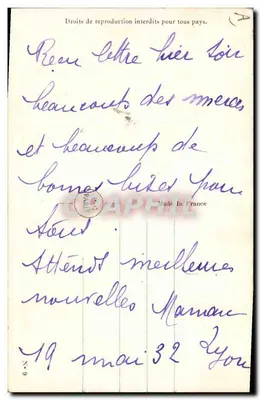 Droits de reproduction interdits pour tous pays.
Reçu lettre hier soir
beaucoup des merces
et beaucoup de
bonnes bises pour
CPAPHIL
Made In France
tous
Attends meilleures
nouvelles Maman
19 mai 32 Lyon
N° 9